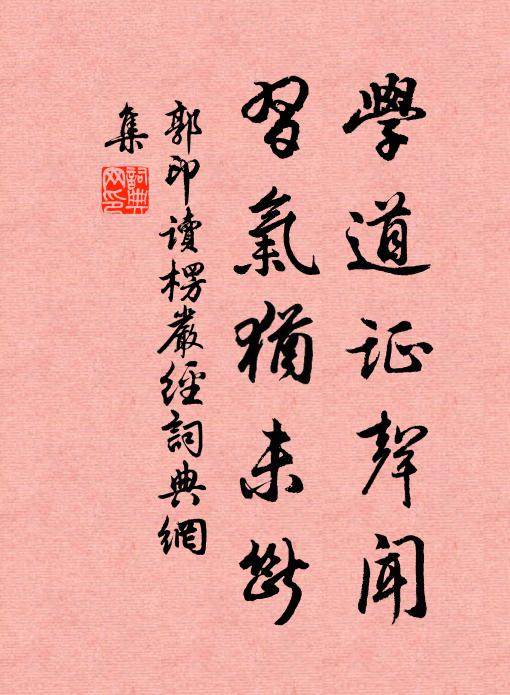 學道证聲闻
習氣猶未斷
郭印讀楞嚴經詞典網
集
詞典
网印